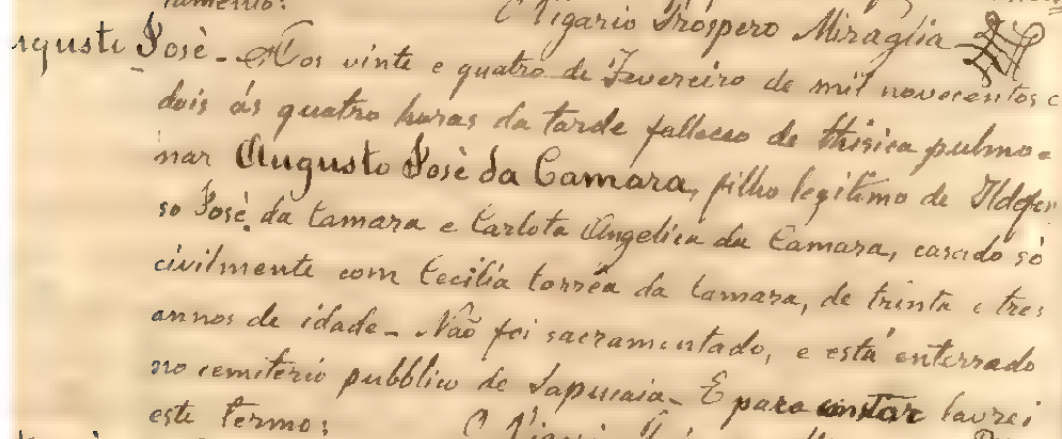 O Vigario Prospero Miraglia
Auguste José - Aos vinte e quatro de Fevereiro de mil novecentos e
dois ás quatro horas da tarde falleceo de thisica pulmo=
nar Augusto José da Camara, filho legitimo de Ildefon
so José da Camara e Carlota Angelica da Camara, casado só
civilmente com Cecilia Corrêa da Camara, de trinta e tres
annos de idade - Não foi sacramentado, e está enterrado
no cemiterio pubblico de Sapucaia - E para constar lavrei
este termo: